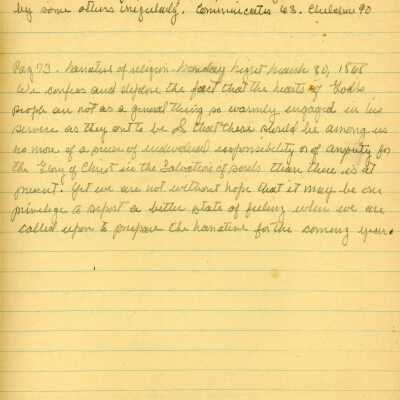 by some others irregularly. Communicates 63. Children 90
Pag 73. Narrative of religion Monday Night March 30, 1868
We confess and deplore the fact that the hearts of God's
people are not as a general thing so warmly engaged in his
service as they out to be & that there should be among us
no more of a sense of individual responsibility or of anxiety for
the Glory of Christ in the Salvation of souls than there is at
present. Yet we are not without hope that it may be our
privilege to report a better state of feeling when we are
called upon to prepare the narrative for the coming year.